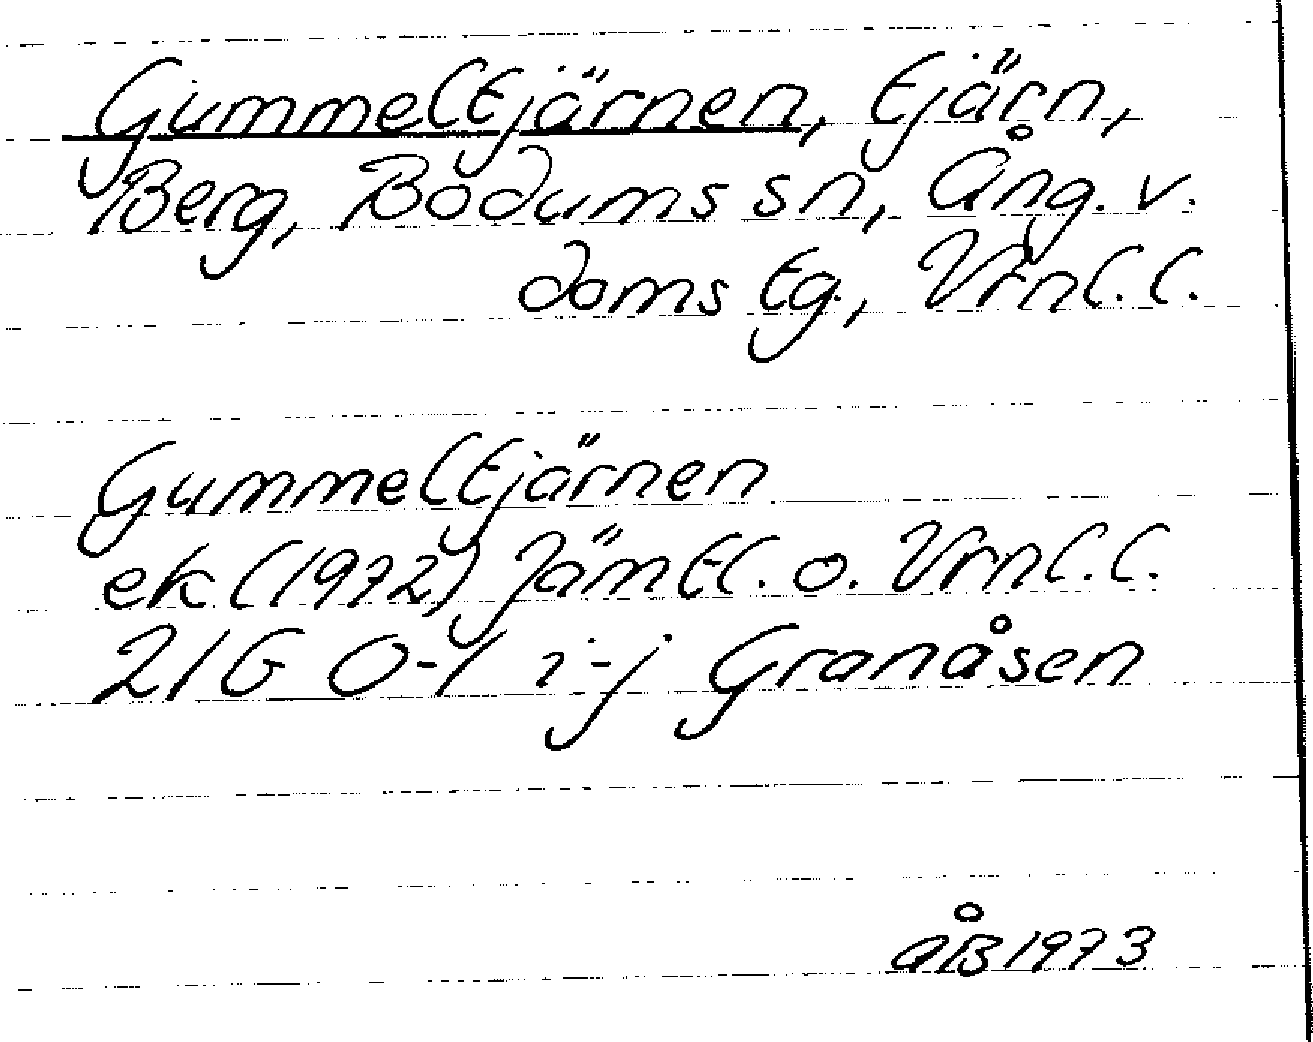 Gummeltjärnen, tjärn,
Berg, Bodums sn, Ång. v.
doms tg., Vrnl. l.
Gummeltjärnen
ek (1972) Jämtl. o. Vrnl. l.
21G 0-1 i-j Granåsen
åB 1973